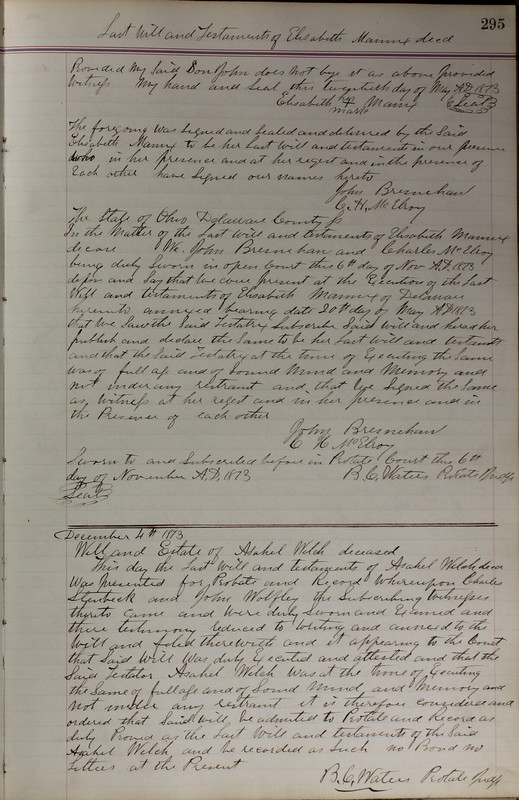 295
Last Will and Testaments of Elisabeth Mannix decd
Provided My Said Son John does not buy it as above provided
Witness My hand and Seal this twentyeth day of May AD 1873
Elisabeth Mannix Seal
mark
The foregoing was Signed and Sealed and delivered by the Said
Elisabeth Mannix to be her Last Will and testaments in our presence
who in her presence and at her reqest and in the presence of
Each other have Signed our names hereto
John Bresnehan
C. H. McElroy
The State of Ohio Delaware County ss
In the Matter of the Last Will and testaments of Elisabeth Mannix
We John Bresnehan and Charles McElroy
being duly Sworn in open Court this 6th day of Nov A.D. 1873
depose and Say that we were present at the Execution of the Last
Will and testaments of Elisabeth Mannix of Delaware
hereunto annexed bearing date 20th day of May AD 1873
that We Saw the Said Testatrix Subscribe Said Will and heard her
publish and declare the Same to be her Last Will and testaments
and that the Said Testatrix at the time of Executing the Same
was of full age and of Sound Mind and Memory and
not under any restraint and that we Signed the Same
as Witness at her reqest and in her presence and in
the Presence of each other
John Bresnehan
C H McElroy
Sworn to and Subscribed before in Probate Court this 6th
day of November A.D. 1873 B. C. Waters Probate Judge
Seal
December 4th 1873
Will and Estate of Asahel Welch deceased
This day the Last Will and testaments of Asahel Welch decd
Was presented for Probate and Record Whereupon Charles
and John Wolfley the Subscribing Witnesses
thereto Came and Were duly Sworn and Examined and
there testimony reduced to Writing and annexed to the
Will and filed therewith and it appearing to the Court
that Said Will Was duly Executed and attested and that the
Said Testator Asahel Welch Was at the time of Executing
the Same of full age and of Sound Mind and Memory and
not under any restraint it is therefore considered and
ordered that Said Will be admitted to Probate and Record as
duly Proved as the Last Will and testaments of the Said
Asahel Welch and be recorded as Such no Bond no
Letters at the Present
B. C. Waters Probate Judge